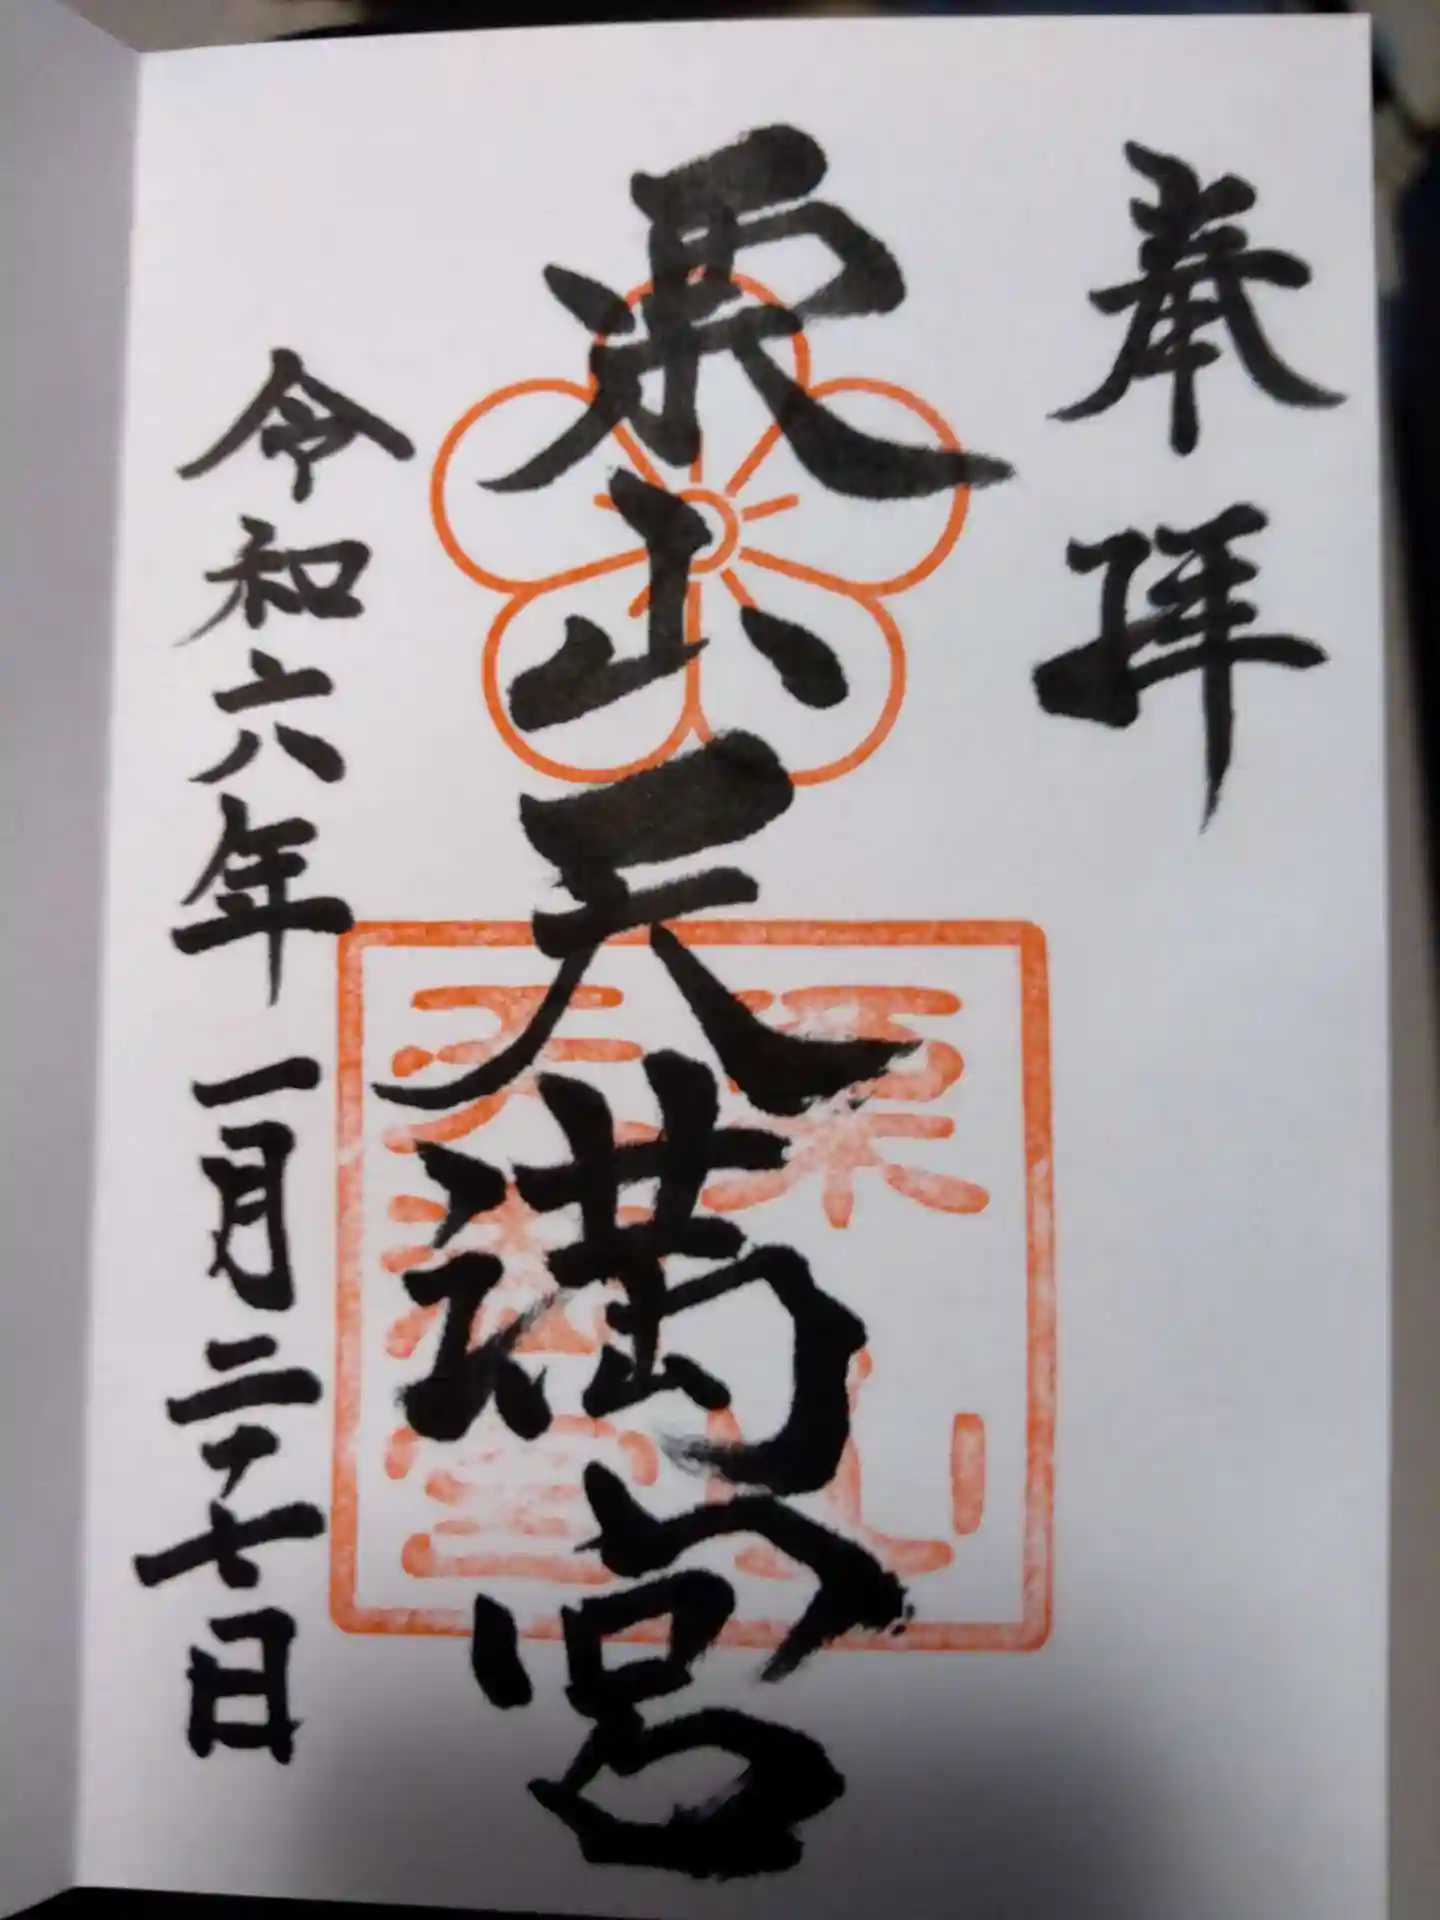 奉拝
栗山天満宮
栗山
天満宮
令和六年一月二十七日